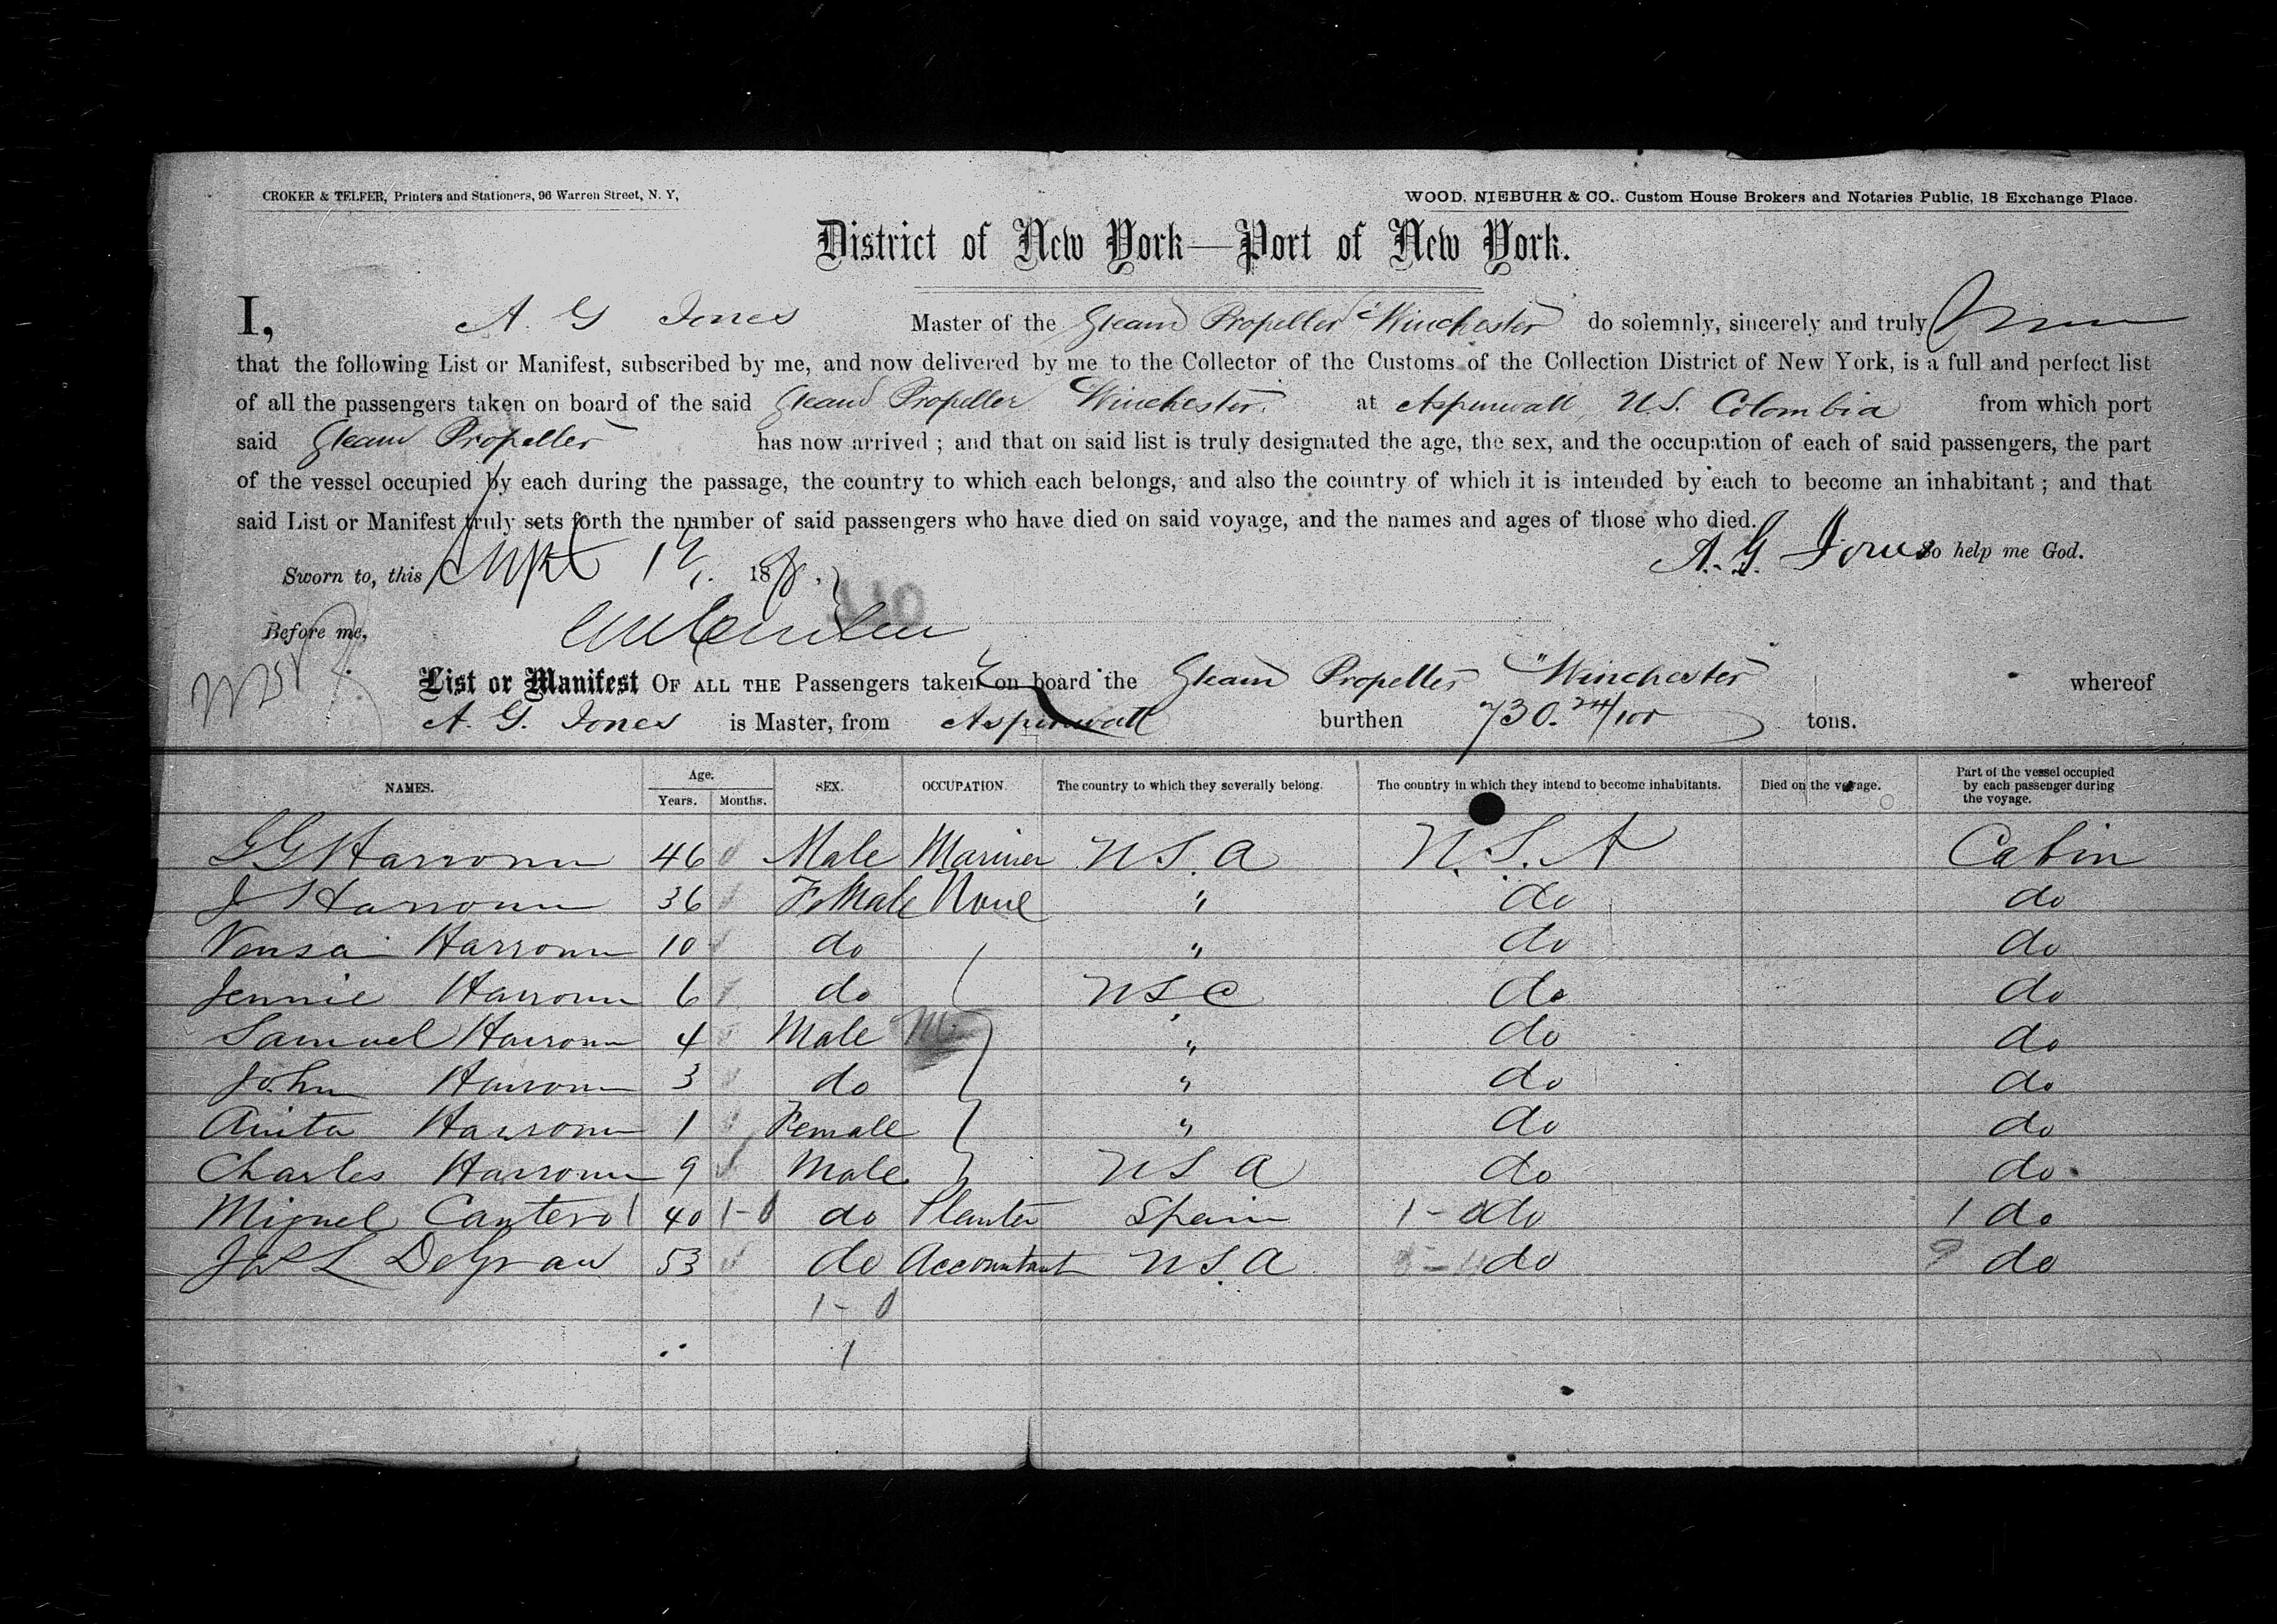 CROKER & TELFER, Printers and Stationers, 96 Warren Street, N. Y,
WOOD, NIEBUHR & CO., Custom House Brokers and Notaries Public, 18 Exchange Place.
District of New York—Port of New York.
I, A. G Jones Master of the Steam Propeller "Winchester do solemnly, sincerely and truly
that the following List or Manifest, subscribed by me, and now delivered by me to the Collector of the Customs of the Collection District of New York, is a full and perfect list
of all the passengers taken on board of the said Steam Propeller Winchester. at Aspinwall, U.S. Colombia from which port
said Steam Propeller has now arrived ; and that on said list is truly designated the age, the sex, and the occupation of each of said passengers, the part
of the vessel occupied by each during the passage, the country to which each belongs, and also the country of which it is intended by each to become an inhabitant ; and that
said List or Manifest truly sets forth the number of said passengers who have died on said voyage, and the names and ages of those who died.
A. G. Jones So help me God.
Sworn to, this Sept 18
Before me,
List or Manifest OF ALL THE Passengers taken on board the Steam Propeller "Winchester" whereof
A. G. Jones is Master, from Aspinwall burthen 730. 24/100 tons.
NAMES. Age. Years. Months. SEX. OCCUPATION. The country to which they severally belong. The country in which they intend to become inhabitants. Died on the voyage. Part of the vessel occupied by each passenger during the voyage.
G G Harroun 46 Male Mariner U S. A U. S. A Cabin
J Harroun 36 FeMale None " do do
Harroun 10 do " do do
Jennie Harroun 6 do U S C do do
Samuel Harroun 4 Male " do do
John Harroun 3 do " do do
Anita Harroun 1 Female " do do
Charles Harroun 9 Male U S A do do
Miguel Cantero 1 40 1-0 do Planter Spain 1- do 1 do
L DeGraw 53 do Accountant U S. A do 9 do
1-0
1